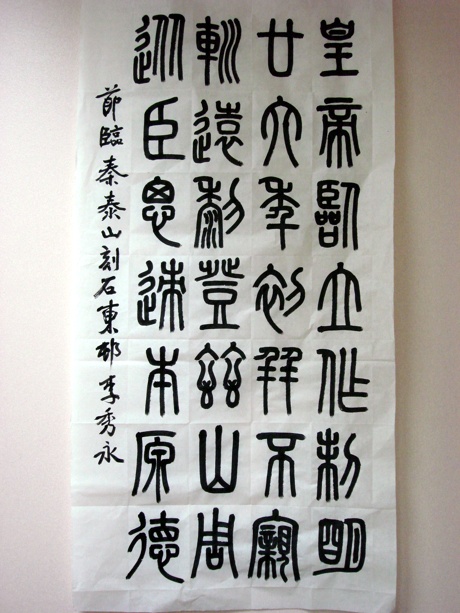 皇帝臨立作制明
廿六年初并不親
䡅遠黎登茲山周
從臣思迹本原德
節臨秦泰山刻石東邨李秀永